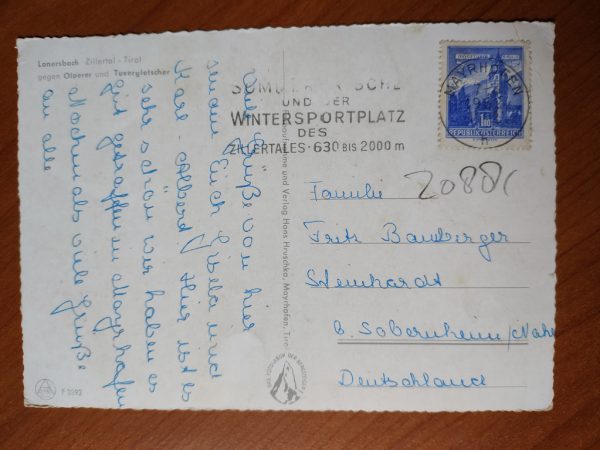 Lanersbach Zillertal - Tirol
gegen Olperer und Tuxergletscher
Viele Grüße von hier
senden Euch Gisela und
Karl-Albert. Hier ist es
sehr schön wir haben es
gut getroffen in Mayrhofen
Nochmals viele Grüße
an alle
F 3592
und Verlag Hans Hruschka, Mayrhofen, Tirol
UND DER
WINTERSPORTPLATZ
DES
ZILLERTALES · 630 BIS 2000 m
MAYRHOFEN
1.80
REPUBLIK ÖSTERREICH
2088
Familie
Fritz Bamberger
Steinhardt
b. Sobernheim/Nahe
Deutschland